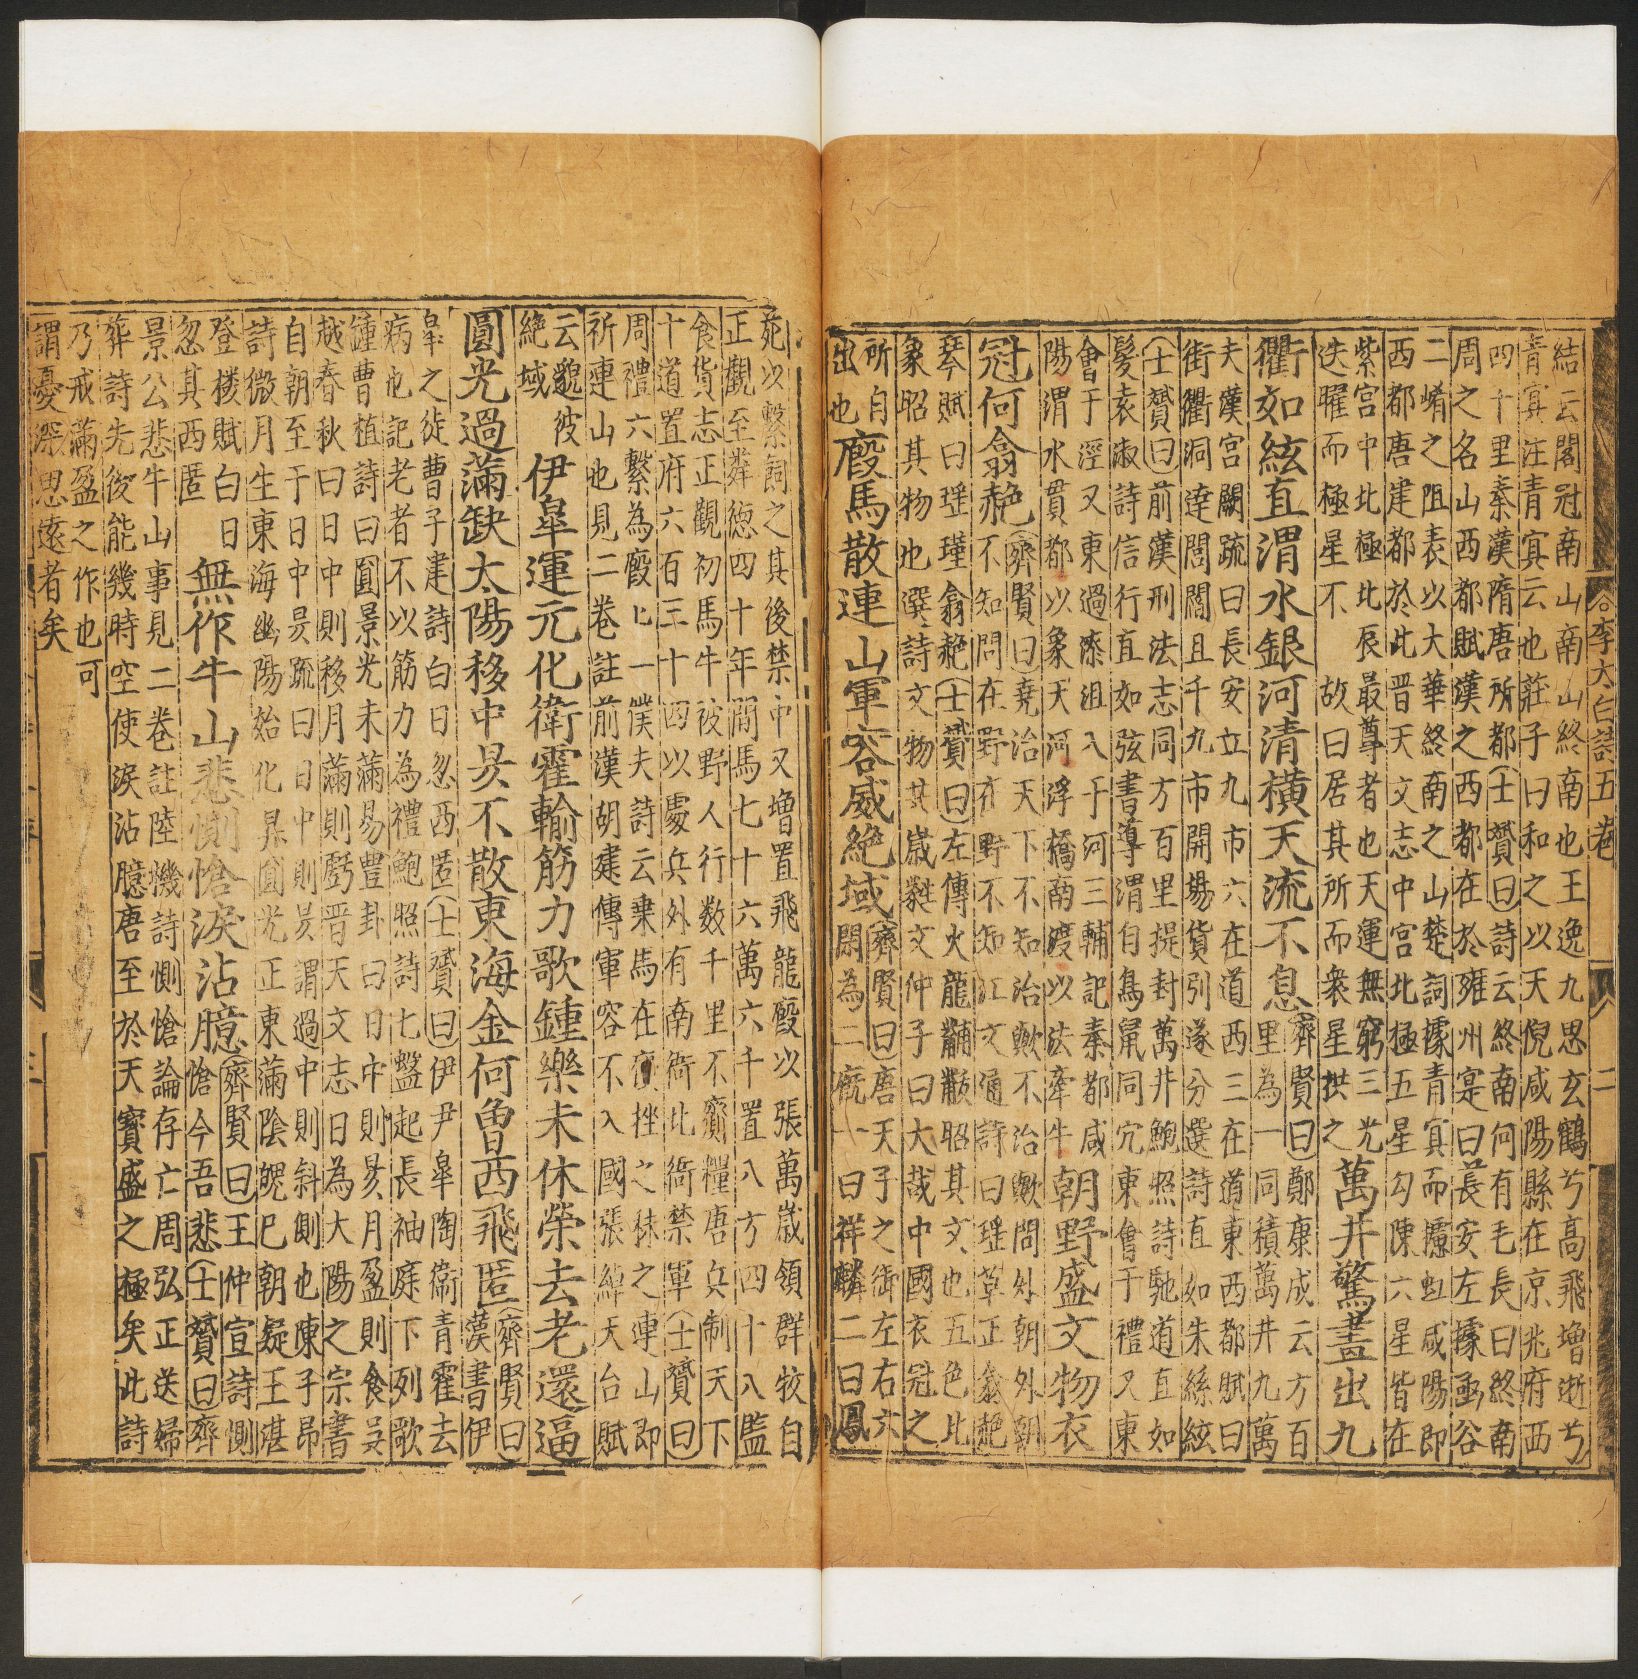 結云閣冠南山南山終南也王逸九思玄鶴兮高飛增逝兮
青冥注青冥云也莊子曰和之以天倪咸陽縣在京兆府西
四十里秦漢隋唐所都士贇曰詩云終南何有毛長曰終南
周之名山西都賦漢之西都在於雍州寔曰長安左據函谷
二崤之阻表以大華終南之山楚詞據青冥而攄虹咸陽即
西都唐建都於此晋天文志中宮北極五星勾陳六星皆在
紫宮中北極北辰最尊者也天運無窮三光
迭曜而極星不故曰居其所而衆星拱之
萬井驚畫出九
衢如絃直渭水銀河清橫天流不息
齊賢曰鄭康成云方百
里為一同積萬井九萬
夫漢宮闕疏曰長安立九市六在道西三在道東西都賦曰
街衢洞達閭閻且千九市開場貨引遂分選詩直如朱絲絃
士贇曰前漢刑法志同方百里提封萬井鮑照詩馳道直如
髮袁淑詩信行直如弦書導渭自鳥鼠同穴東會于禮又東
會于涇又東過漆沮入于河三輔記秦都咸
陽渭水貫都以象天河浮橋南渡以法牽牛
朝野盛文物衣
冠何翕赩
齊賢曰堯治天下不知治歟不治歟問外朝外朝
不知問在野在野不知江文通詩曰瑶草正翕赩
琴賦曰瑶瑾翕赩士贇曰左傳火龍黼黻昭其文也五色比
象昭其物也選詩文物共葳蕤文仲子曰大哉中國衣冠之
所自
出也
廐馬散連山軍容威絶域
齊賢曰唐天子之御左右六
閑為二廐一曰祥麟二曰鳳
苑以繫飼之其後禁中又增置飛龍廐以張萬歲領群牧自
正觀至麟徳四十年間馬七十六萬六千置八方四十八監
食貨志正觀初馬牛被野人行数千里不齎糧唐兵制天下
十道置府六百三十四以處兵外有南衙北衙禁軍士贇曰
周禮六繫為廐匕一僕夫詩云乗馬在廐挫之秣之連山即
祈連山也見二卷註前漢胡建傳軍容不入國張綽天台賦
云邈彼
絶域
伊臯運元化衛霍輸筋力歌鍾樂未休榮去老還逼
圓光過滿缺太陽移中昃不散東海金何鲁西飛匿
齊賢曰
漢書伊
臯之徒曹子建詩白日忽西匿士贇曰伊尹臯陶衛青霍去
病也記老者不以筋力為禮鮑照詩七盤起長袖庭下列歌
鍾曹植詩曰圓景光未滿易豊卦曰日中則昃月盈則食吴
越春秋曰日中則移月滿則虧晋天文志日為大陽之宗書
自朝至于日中昃疏曰日中則昃謂過中則斜側也陳子昂
詩微月生東海幽陽始化昇圓光正東滿陰魄巳朝凝王湛
登楼賦白日
忽其西匿
無作牛山悲惻愴淚沾臆
齊賢曰王仲宣詩惻
愴今吾悲士贇曰齊
景公悲牛山事見二卷註陸機詩惻愴論存亡周弘正送婦
葬詩先後能幾時空使淚沾臆唐至於天寳盛之極矣此詩
乃戒滿盈之作也可
謂憂深思遠者矣
李太白詩五卷
二